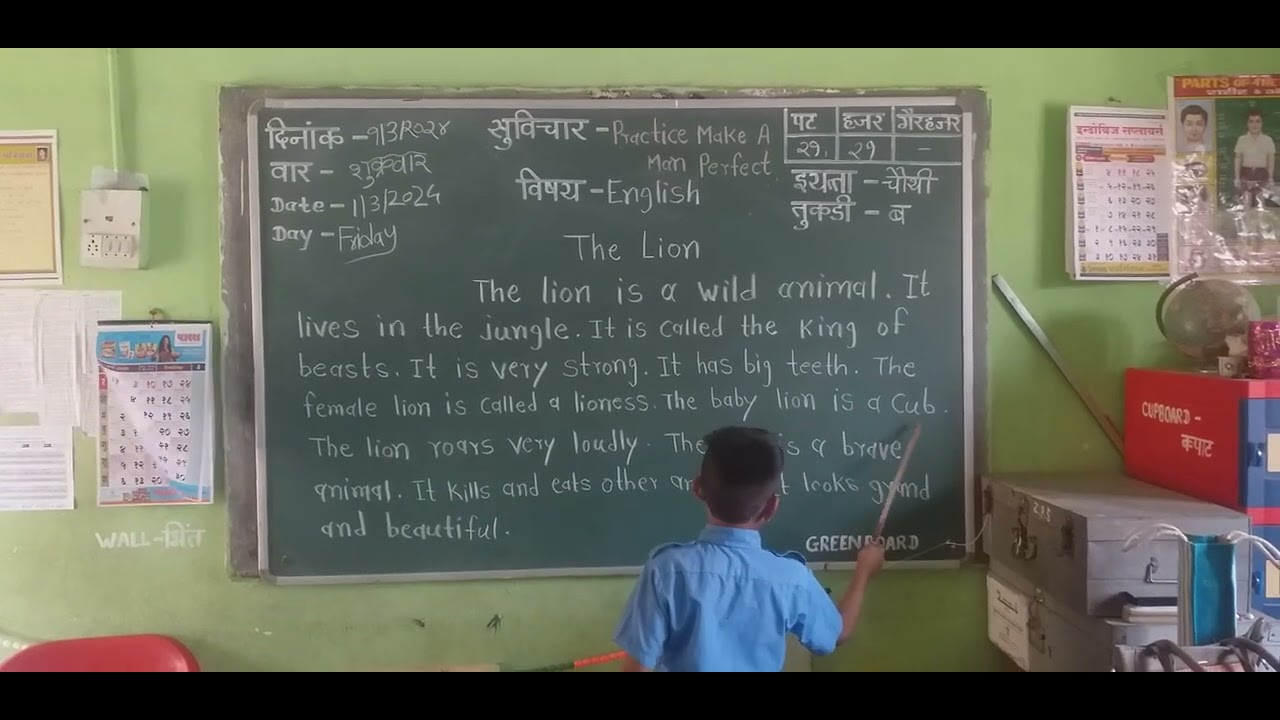 दिनांक - १/3/२०२४
वार - शुक्रवार
Date - 1/3/2024
Day - Friday
सुविचार - Practice Make A
Man Perfect
विषय - English
पट हजर गैरहजर
२१. २१ -
इयत्ता - चौथी
तुकडी - ब
The Lion
The lion is a wild animal. It
lives in the jungle. It is called the King of
beasts. It is very strong. It has big teeth. The
female lion is called a lioness. The baby lion is a Cub.
The lion roars very loudly. The is a brave
animal. It kills and eats other It looks grand
and beautiful.
GREEN BOARD
WALL - भिंत
CUPBOARD -
कपाट
PARTS OF THE